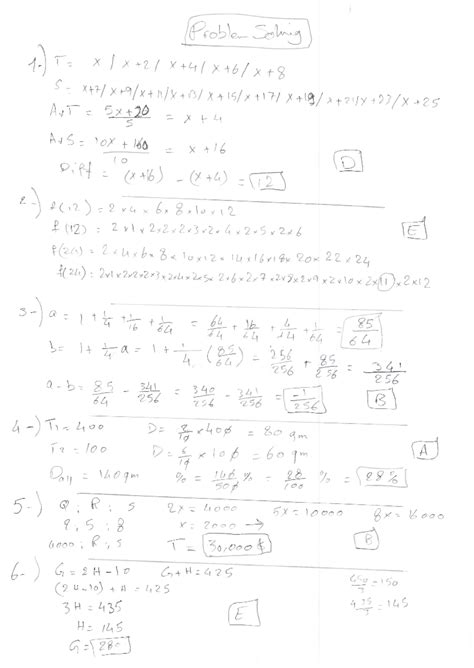 Problem Solving
1-) T = x / x+2 / x+4 / x+6 / x+8
S = x+7/ x+9/ x+11/ x+13/ x+15/ x+17/ x+19/ x+21/ x+23/ x+25
AvT = 5x+20/5 = x+4
AvS = 10x+160/10 = x+16
Diff = (x+16) - (x+4) = 12
D
2-) f(12) = 2x4x6x8x10x12
E
f(12) = 2x1x2x2x2x3x2x4x2x5x2x6
f(24) = 2x4x6x8x10x12x14x16x18x20x22x24
f(24) = 2x1x2x2x2x3x2x4x2x5x2x6x2x7x2x8x2x9x2x10x2x11x2x12
3-) a = 1 + 1/4 + 1/16 + 1/64 = 64/64 + 16/64 + 4/64 + 1/64 = 85/64
b = 1 + 1/4 a = 1 + 1/4 . (85/64) = 256/256 + 85/256 = 341/256
a-b = 85/64 - 341/256 = 340/256 - 341/256 = -1/256
B
4-) T1 = 400 D = /10 x 400 = 80 gm
A
T2 = 100 D = 6/10 x 100 = 60 gm
= 140 gm % = 140/500 = 28/100 % = 28%
5-) Q : R : S 2x = 4000 5x = 10000 8x = 16000
2 : 5 : 8 x = 2000 →
B
4000 : R : S T = 30,000 $
6-) G = 2H-10 G+H = 425
(2H-10) + H = 425
3H = 435
H = 145
E
G = 280
450/3 = 150
435/3 = 145